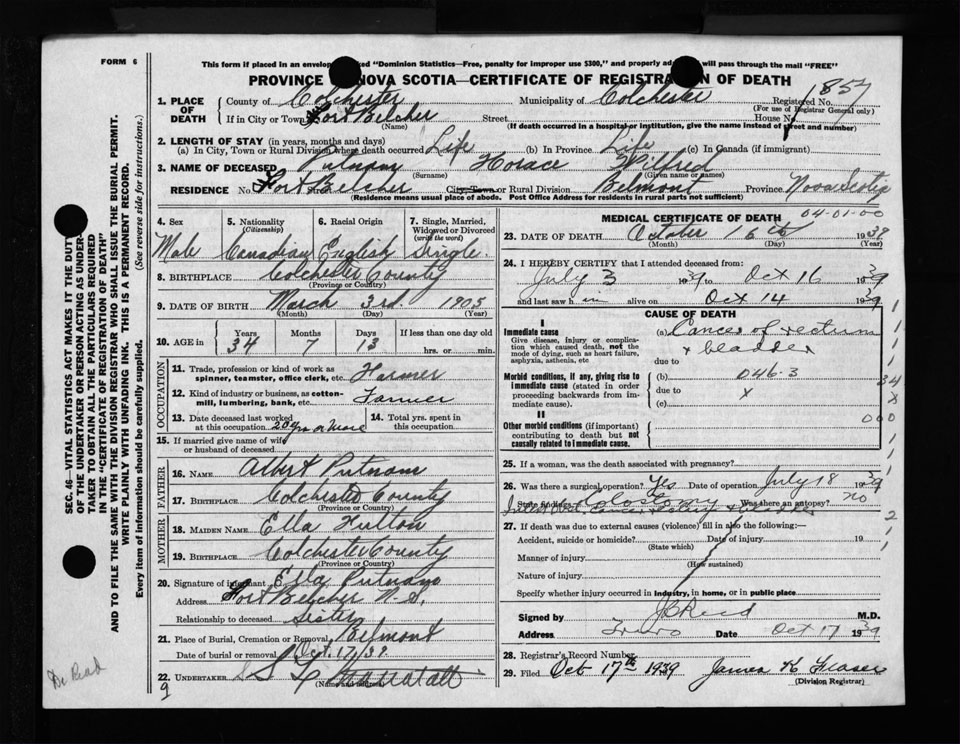 FORM 6
This form if placed in an envelope marked "Dominion Statistics—Free, penalty for improper use $300," and properly ad will pass through the mail "FREE"
PROVINCE NOVA SCOTIA—CERTIFICATE OF REGISTRATION OF DEATH
1. PLACE OF DEATH
County of Colchester Municipality of Colchester Registered No. 1857
(For use of Registrar General only)
If in City or Town Fort Belcher Street House No.
(Name) (If death occurred in a hospital or institution, give the name instead of street and number)
2. LENGTH OF STAY (in years, months and days)
(a) In City, Town or Rural Division where death occurred Life (b) In Province Life (c) In Canada (if immigrant)
3. NAME OF DECEASED Putnam Horace Wilfred
(Surname) (Given name or names)
RESIDENCE No. Fort Belcher Street City, Town or Rural Division Belmont Province Nova Scotia
(Residence means usual place of abode. Post Office Address for residents in rural parts not sufficient)
4. Sex Male
5. Nationality (Citizenship) Canadian
6. Racial Origin English
7. Single, Married, Widowed or Divorced (write the word) Single.
8. BIRTHPLACE Colchester County
(Province or County)
9. DATE OF BIRTH March 3rd 1905
(Month) (Day) (Year)
10. AGE in Years 34 Months 7 Days 13 If less than one day old hrs. or min.
OCCUPATION
11. Trade, profession or kind of work as spinner, teamster, office clerk, etc. Farmer
12. Kind of industry or business, as cotton-mill, lumbering, bank, etc. Farmer
13. Date deceased last worked at this occupation
14. Total yrs. spent in this occupation 20 yrs or more
15. If married give name of wife or husband of deceased
FATHER
16. NAME Albert Putnam
17. BIRTHPLACE Colchester County
(Province or County)
MOTHER
18. MAIDEN NAME Ella Fulton
19. BIRTHPLACE Colchester County
(Province or County)
20. Signature of informant Ella Putnam
Address Fort Belcher N.S.
Relationship to deceased Sister
21. Place of Burial, Cremation or Removal Belmont
Date of burial or removal Oct. 17/39
22. UNDERTAKER
(Name and address)
9
MEDICAL CERTIFICATE OF DEATH
04-01-00
23. DATE OF DEATH October 16th 1939
(Month) (Day) (Year)
24. I HEREBY CERTIFY that I attended deceased from:
July 3 1939 to Oct 16 1939
and last saw him alive on Oct 14 1939
CAUSE OF DEATH
I
Immediate cause
Give disease, injury or complication which caused death, not the mode of dying, such as heart failure, asphyxia, asthenia, etc
(a) Cancer of rectum
+ bladder
due to
Morbid conditions, if any, giving rise to immediate cause (stated in order proceeding backwards from immediate cause).
(b) 046-3
due to x
(c)
II
Other morbid conditions (if important) contributing to death but not causally related to immediate cause.
34
x
000
25. If a woman, was the death associated with pregnancy?
26. Was there a surgical operation? Yes Date of operation July 18 1939
State findings Colostomy Was there an autopsy? no
27. If death was due to external causes (violence) fill in also the following:—
Accident, suicide or homicide? Date of injury 19
(State which)
Manner of injury
(How sustained)
Nature of injury
Specify whether injury occurred in industry, in home, or in public place
Signed by Reid M.D.
Address Truro Date Oct 17 1939
28. Registrar's Record Number
29. Filed Oct 17th 1939 James K Fraser
(Division Registrar)
SEC. 46—VITAL STATISTICS ACT MAKES IT THE DUTY
OF THE UNDERTAKER OR PERSON ACTING AS UNDERTAKER TO OBTAIN ALL THE PARTICULARS REQUIRED
IN THE "CERTIFICATE OF REGISTRATION OF DEATH"
AND TO FILE THE SAME WITH THE DIVISION REGISTRAR WHO SHALL ISSUE THE BURIAL PERMIT.
WRITE PLAINLY WITH UNFADING INK. THIS IS A PERMANENT RECORD.
Every item of information should be carefully supplied. (See reverse side for instructions.)
Dr Read